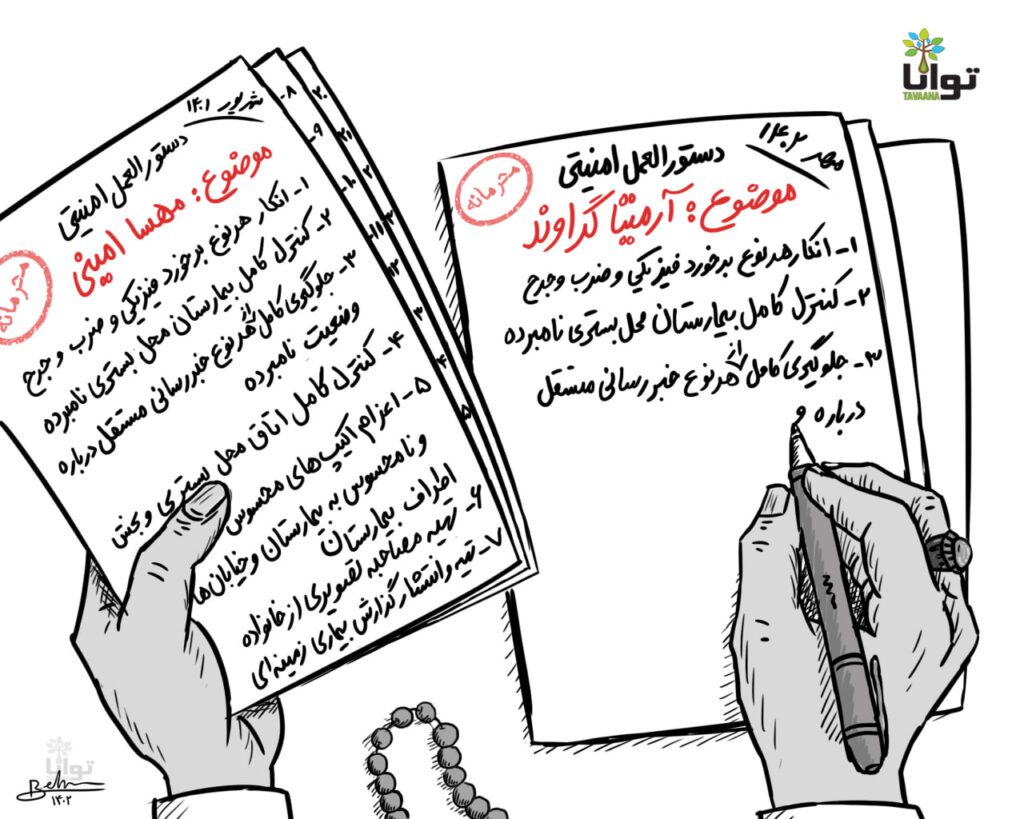 توانا
TAVAANA
مهر ۱۴۰۲
دستورالعمل امنیتی
محرمانه
موضوع: آرمیتا گراوند
۱- انکار هر نوع برخورد فیزیکی و ضرب و جرح
۲- کنترل کامل بیمارستان محل بستری نامبرده
۳- جلوگیری کامل از هر نوع خبررسانی مستقل
درباره و
شهریور ۱۴۰۱
دستورالعمل امنیتی
محرمانه
موضوع: مهسا امینی
۱- انکار هر نوع برخورد فیزیکی و ضرب و جرح
۲- کنترل کامل بیمارستان محل بستری نامبرده
۳- جلوگیری کامل از هر نوع خبررسانی مستقل درباره
وضعیت نامبرده
۴- کنترل کامل اتاق محل بستری و بخش
۵- اعزام اکیپ‌های محسوس
و نامحسوس به بیمارستان و خیابان‌های
اطراف بیمارستان
۶- تهیه مصاحبه تصویری از خانواده
۷- تهیه و انتشار گزارش بیماری زمینه‌ای
۸-
۹-
۱۰-
۱۱-
۱۲
توانا
Beh
۱۴۰۲